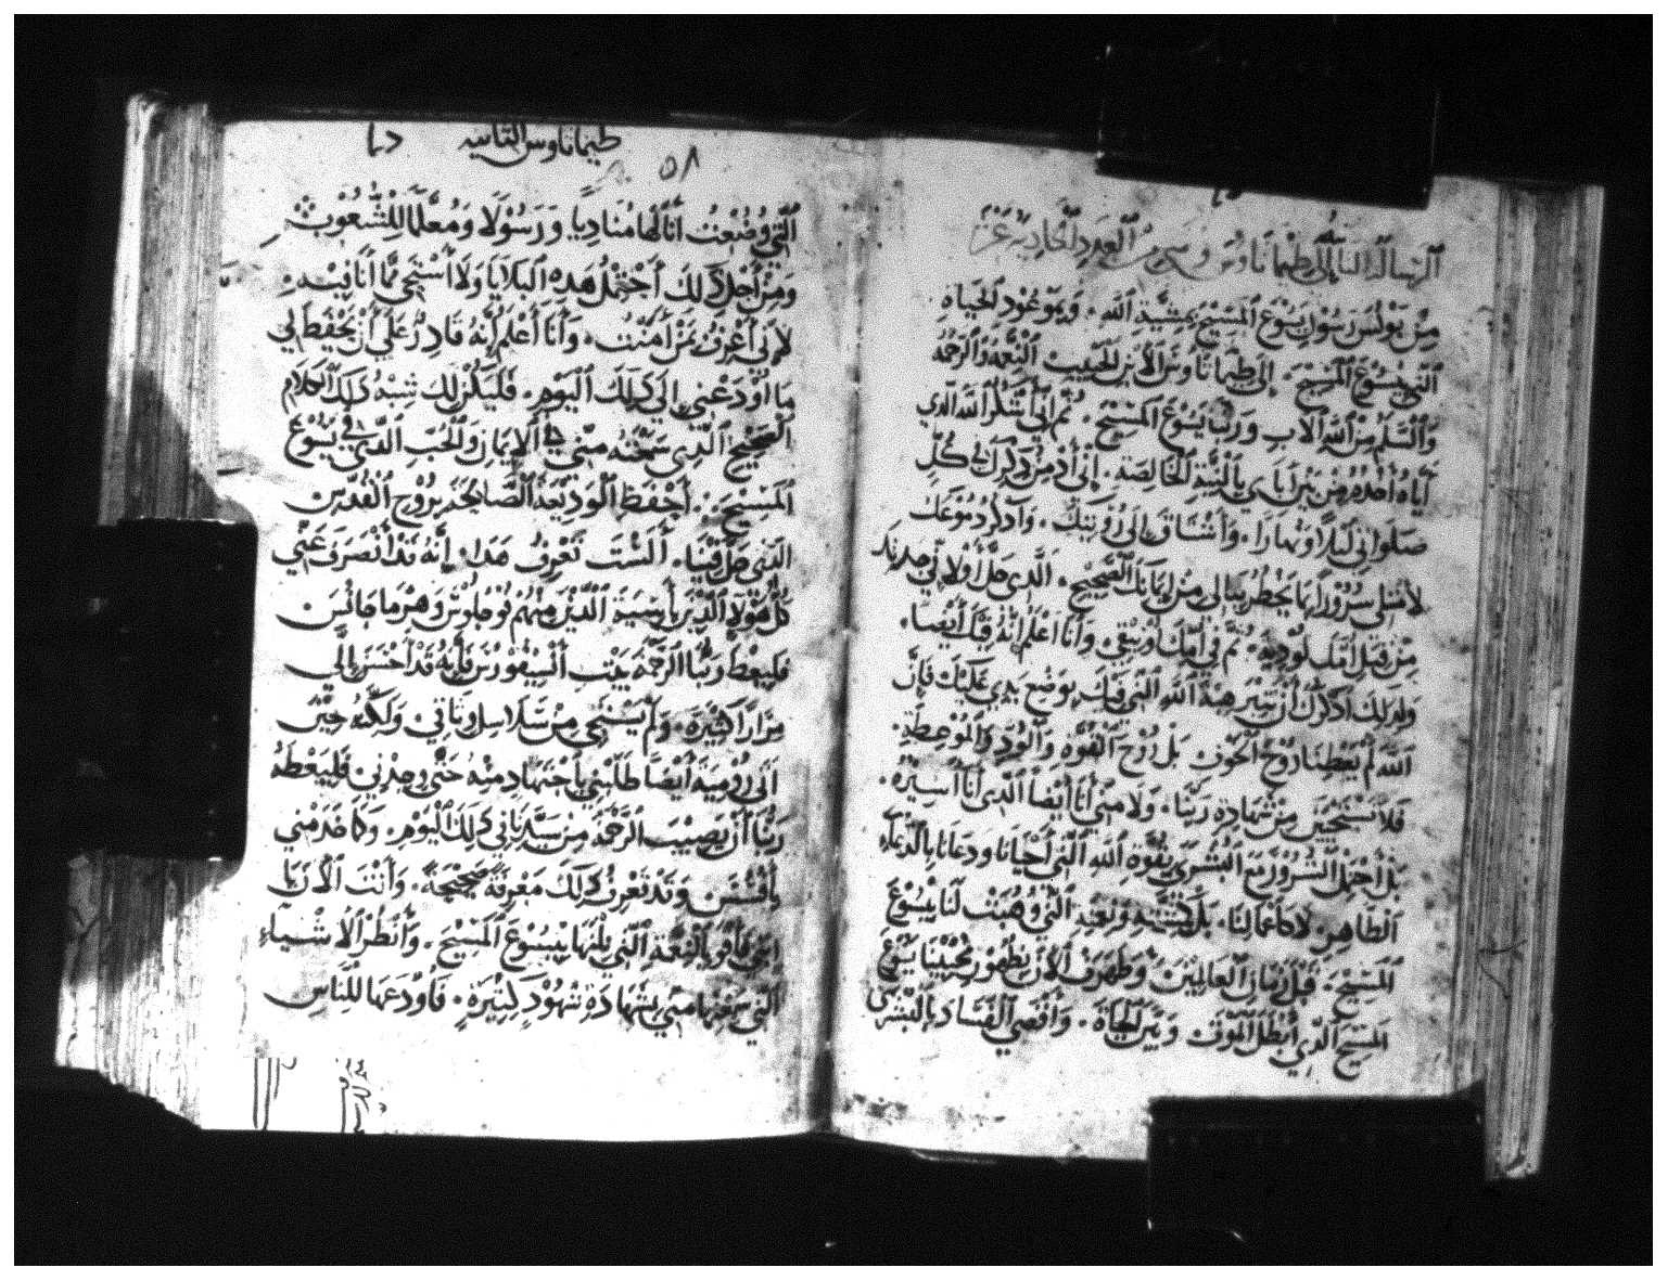 الرسالة الثانية إلى طيماتاوس وهي من العدد الحادية عشر
مِن بَوْلُسَ رَسُوْلِ يَسُوْعَ المَسِيْحِ بِمَشِيَّةِ اللهِ. وَبِمَوْعُوْدِ الحَيَاهِ
الَّتِي بِيَسُوْعَ المَسِيْحَ. إِلَى طِيْمَاتَاوُسَ الاِبْنِ الحَبِيْبِ النِّعْمَةُ وَالرَّحْمَةُ
وَالسَّلَمُ مِنَ اللهِ الآبِ وَرَبِّنَا يَسُوْعَ المَسِيْحِ. ثُمَّ إِنِّي أَشْكُرُ اللهَ الَّذِي
أَيَّاهُ أَخْدُمُ مِن بَيْن آبَايِ بِالنِّيَّةِ الخَالِصَةِ. إِنِّي أُدْمِنُ ذِكْرَكَ فِي كُلِّ
صَلَوَاتِي لَيْلًا وَنَهَارًا. وَأَشْتَاقُ إِلَى رُؤْيَتِكَ. وَأَذكُر دُمُوْعَكَ
لأَمْتَلِي سُرُوْرًا بِمَا يَخْطُرُ بِبَالِي مِنْ إِيمَانِكَ الصَّحِيْحِ. الَّذِي حَلَّ أَوَّلًا فِي جدتك
مِنْ قِبَلِ امِّكَ لُودِيَة. ثُمَّ فِي أُمِّكَ أَوْنِيْقِي. وَأَنَا أَعْلَمُ إِنَّهُ فِيْكَ أَيْضًا.
وَلِذَلِكَ أذكرك أن تثير هبة اللهِ الَّتِي فِيْكَ بِوَضْعِ يَدِي عَلَيْكَ فَإِنَّ
اللهَ لَمْ يُعْطِنَا رُوْحَ الخَوْفِ بَلْ رُوْحَ القُوَّهِ وَالوُدِّ وَالمَوْعِظَةِ.
فَلَا تَسْتَحْيِيَنَّ مِنْ شَهَادَةِ رَبِّنَا. وَلَا مِنِّي أَنَا أَيْضًا الَّذِي أَنَا أَسِيْرُهُ.
بَلْ أَحْتَمِلِ الشُّرُوْرَ مَعَ البُشْرَى بِقُوَّةِ اللهِ الَّتِي أَحْيَانَا وَدَعَانَا بِالدُّعَاءِ
الطَّاهِر. لَا كَأَعْمَالِنَا. بَلْ كَمَشِيَّتِهِ وَنِعْمَتِهِ الَّتِي وُهِبَتْ لَنَا بِيَسُوْعَ
المَسِيْحِ. قَبْلَ زَمَانِ العَالَمِيْنَ. وَظَهَرَتِ الآنَ بِظُهُوْرِ مُحْيِيْنَا يَسُوْعَ
المَسِيْحِ الَّذِي أَبْطَلَ المَوْتَ وَبَيَّنَ الحَيَاةَ. وَأَقْصَى الفَسَادَ بِالبُشْرَى
طيماتاوس الثانيه
٥٨
الَّتِي وُضِعْتُ أَنَا لَهَا مُنَادِيًا وَرَسُوْلًا وَمُعَلِّمًا لِلشُّعُوْبِ
وَمِنْ أَجْلِ ذَلِكَ أَحْتَمِلُ هَذِهِ البَلَايَا وَلَا أَسْتَحِي مِمَّا أَنَا فِيْهِ.
لِأَنِّي أَعْرِفُ بِمَنْ آمَنْتُ. وَأَنَا أَعْلَمُ إِنَّهُ قَادِرٌ عَلَى أَنْ يَحْفَظَ لِي
مَا أَوْدَعْنِي إِلَى ذَلِكَ اليَوْمِ. فَلْيَكُنْ لَكَ شِبْهُ ذَلِكَ الكَلَامِ
الصَّحِيْحِ الَّذِي سَمِعْتَهُ مِنِّي فِي الإِيْمَانِ وَالحُبِّ الَّذِي فِي يَسُوْعَ
المَسِيْحِ. إِحْفَظِ الوَدِيْعَةَ الصَّالِحَةَ بِرُوْحِ القُدُسِ
الَّذِي حَلَّ فِيْنَا. أَلَسْتَ تَعْرِفُ هَذَا. إِنَّهُ قَدْ أَنْصَرَفَ عَنِّي
كُلُّ هَوُلَآ الَّذِيْنَ بِأَسِيَةَ الَّذِيْنَ مِنْهُمْ فُوْجِلُوسُ وَهَرْمَاجَانُسَ.
فَلْيُعْطِ رَبُّنَا الرَّحْمَةَ بَيْتِ أَنْسِيْفُوْرُسَ فَإِنَّهُ قَدْ أَحْسَنَ إِلَيَّ
مِرَارًا كَثِيْرَةً. وَلَمْ يَسْتَحِي مِنْ سَلَاسِلِ وَثَاقِي. وَلَكِنَّهُ حِيْنَ
أَتَى رُوْمِيَةَ أَيْضًا طَلَبَنِي بِأَجْتِهَادٍ مِنْهُ حَتَّى وَجَدَنِي. فَلْيُعْطِهُ
رَبُّنَا أَنْ يُصِيْبَ الرَّحْمَةَ مِنْ سَيِّدِنَا فِي ذَلِكَ اليَوْمِ. وَكَمَا خَدَمَنِي
بِأَفْسُسَ وَقَدْ تَعْرِفُ ذَلِكَ مَعْرِفَةً صَحِيْحَةً. وَأَنْتَ الآنَ يَا
ابْنِي فَأْقْوَ بِالنِّعْمَةِ الَّتِي نِلْتَهَا بِيَسُوْعَ المَسِيْحِ. وَأَنْظُرْ الأَشْيَاءِ
الَّتِي سَمِعْتَهَا مِنِّي بِشَهَادَةِ شُهُوْدٍ كَثِيْرَةٍ. فَأَوْدِعْهَا لِلنَّاسِ